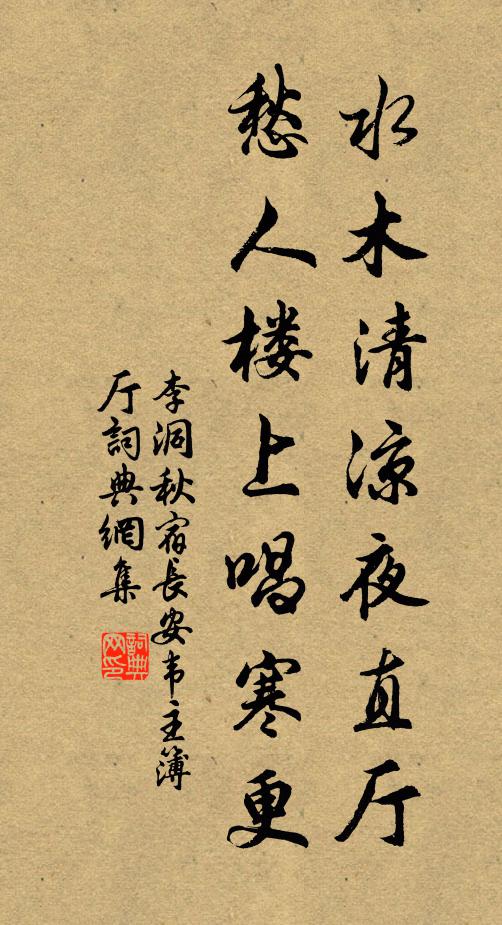 水木清凉夜直厅
愁人楼上唱寒更
李洞秋宿長安韦主簿
厅詞典網集
詞典
网印